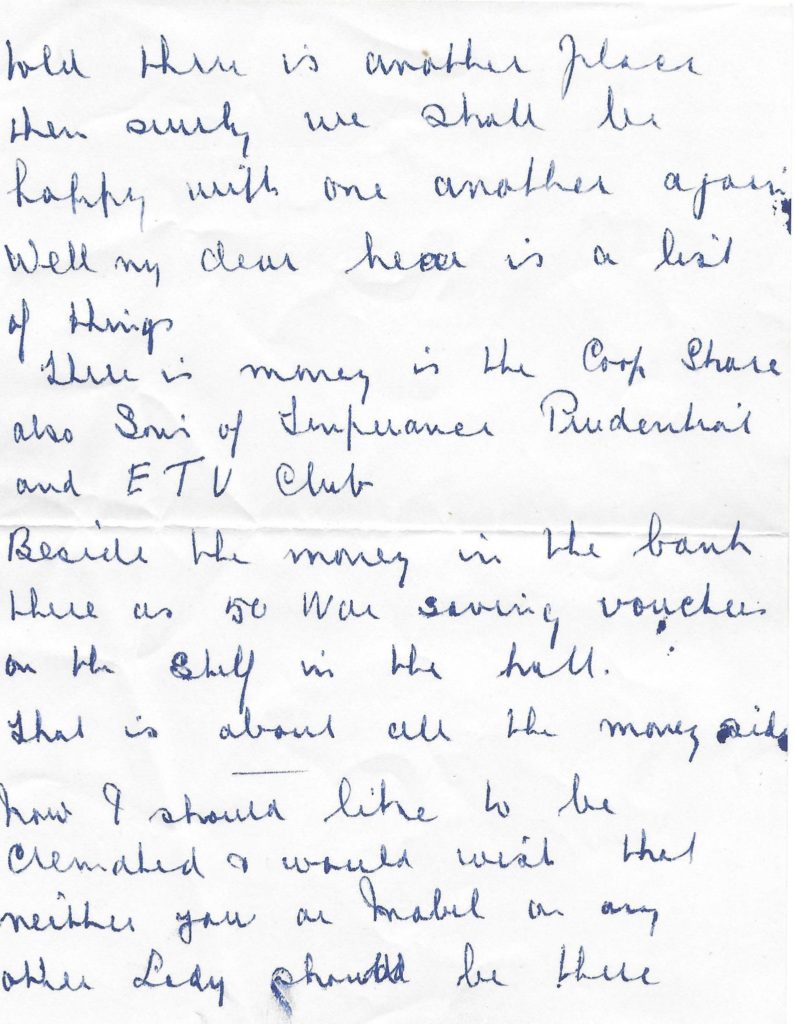 told there is another place
then surely we shall be
happy with one another again
Well my dear hear is a list
of things
There is money is the Coop Share
also Sons of Temperance Prudential
and E T U Club
Beside the money in the bank
there as 50 War saving vouchers
on the shelf in the hall.
That is about all the money side
Now I should like to be
Cremated & would wish that
neither you or Mabel or any
other Lady should be there